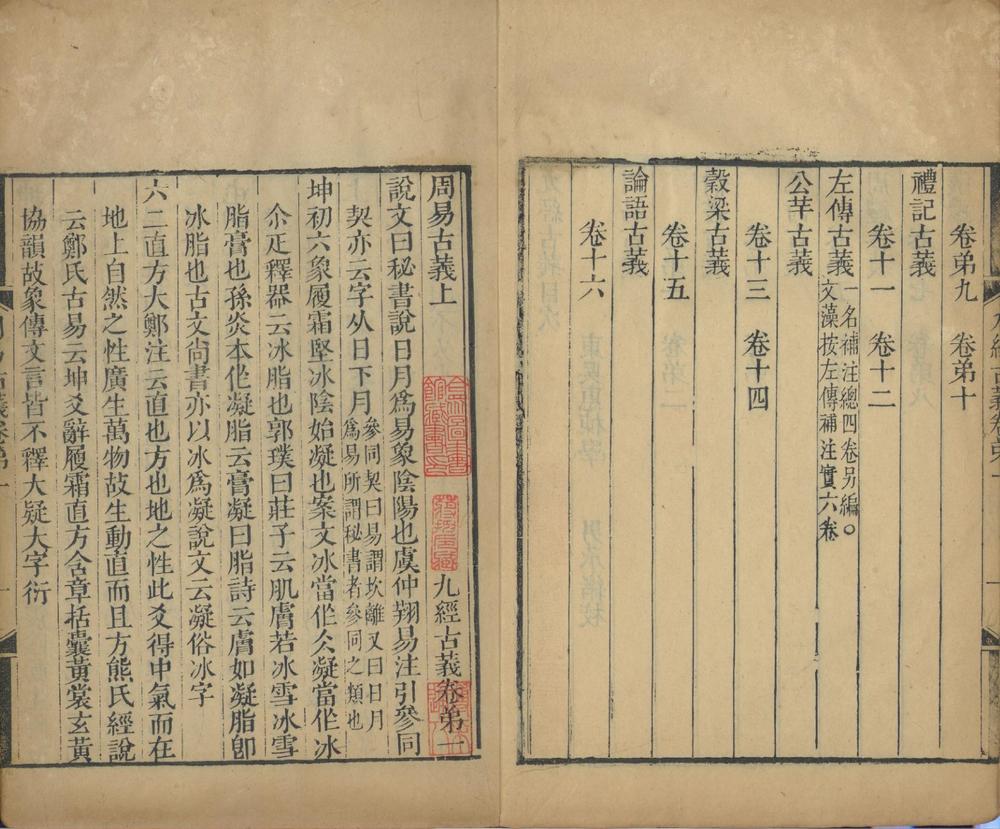 卷弟九 卷弟十
禮記古義
卷十一 卷十二
左傳古義 一名補注總四卷另編○
文藻按左傳補注實六卷
公羊古義
卷十三 卷十四
穀梁古義
卷十五
論語古義
卷十六
周易古義上 九經古義卷弟一
說文曰秘書說日月爲易象陰陽也虞仲翔易注引參同
契亦云字从日下月 參同契曰易謂坎離又曰日月
爲易所謂秘書者參同之類也
坤初六象履霜堅冰陰始凝也案文冰當作仌凝當作冰
尒疋釋器云冰脂也郭璞曰莊子云肌膚若冰雪冰雪
脂膏也孫炎本作凝脂云膏凝曰脂詩云膚如凝脂卽
冰脂也古文尙書亦以冰爲凝說文云凝俗冰字
六二直方大鄭注云直也方也地之性此爻得中氣而在
地上自然之性廣生萬物故生動直而且方熊氏經說
云鄭氏古易云坤爻辭履霜直方含章括囊黃裳玄黃
協韻故象傳文言皆不釋大疑大字衍